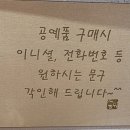 공예품 구매시
이니셜, 전화번호 등
원하시는 문구
각인해 드립니다~^^